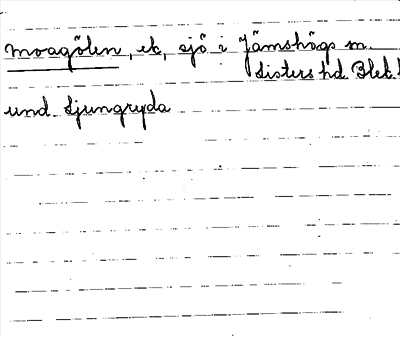 Moagölen, ek, sjö i Jämshögs sn.
Listers hd. Blek.
und. Ljungryda